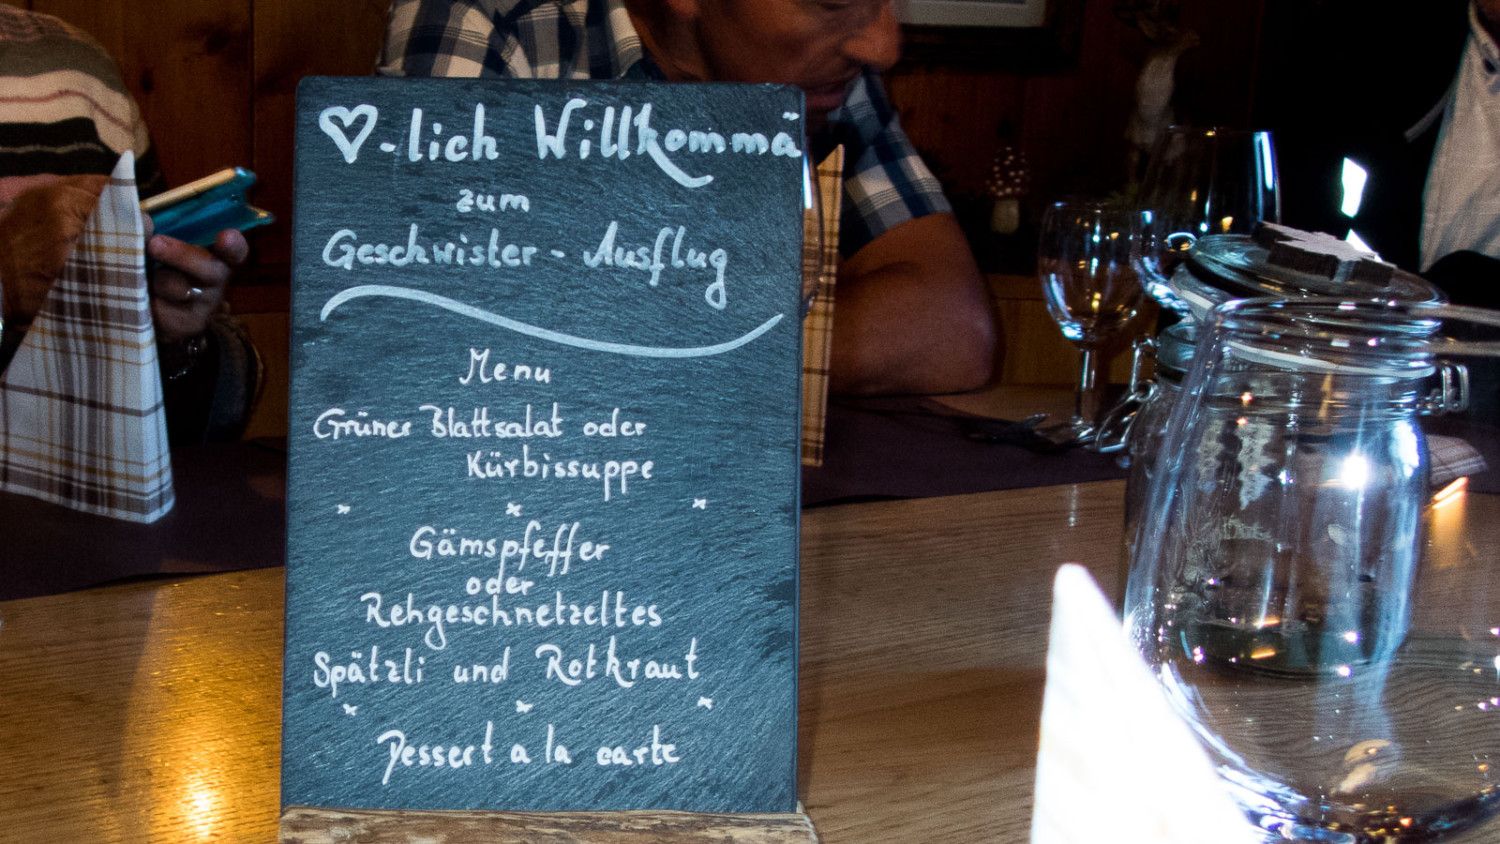 ♡-lich Willkommä
zum
Geschwister - Ausflug
Menu
Grüner Blattsalat oder
Kürbissuppe
Gämspfeffer
oder
Rehgeschnetzeltes
Spätzli und Rotkraut
Dessert a la carte